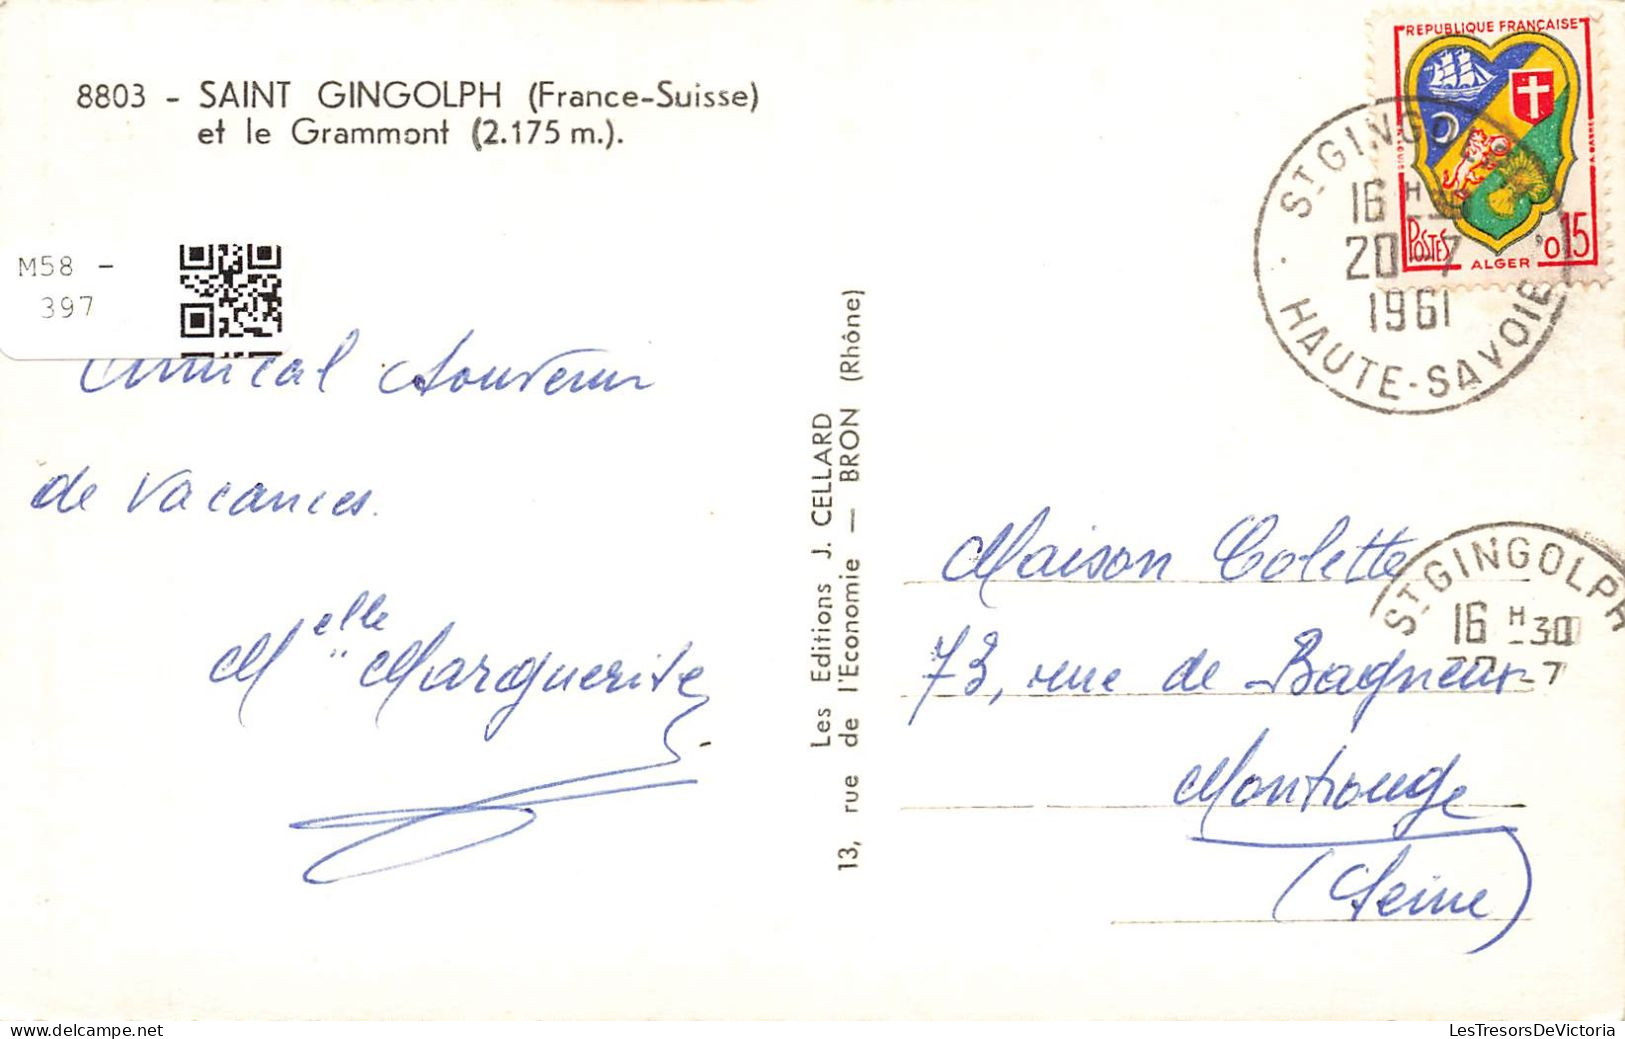 8803 - SAINT GINGOLPH (France-Suisse)
et le Grammont (2.175 m.).
M58 -
397
Amical souvenir
de vacances.
Melle Marguerite
Les Editions J. CELLARD
13, rue de l'Economie — BRON (Rhône)
REPUBLIQUE FRANÇAISE
POSTES
ALGER
0,15
ST GINGO
16 H 30
20 - 7
1961
HAUTE-SAVOIE
Maison Colette
73, rue de Bagneux
Montrouge
(Seine)
ST GINGOLPH
16 H 30
20 - 7
LesTresorsDeVictoria